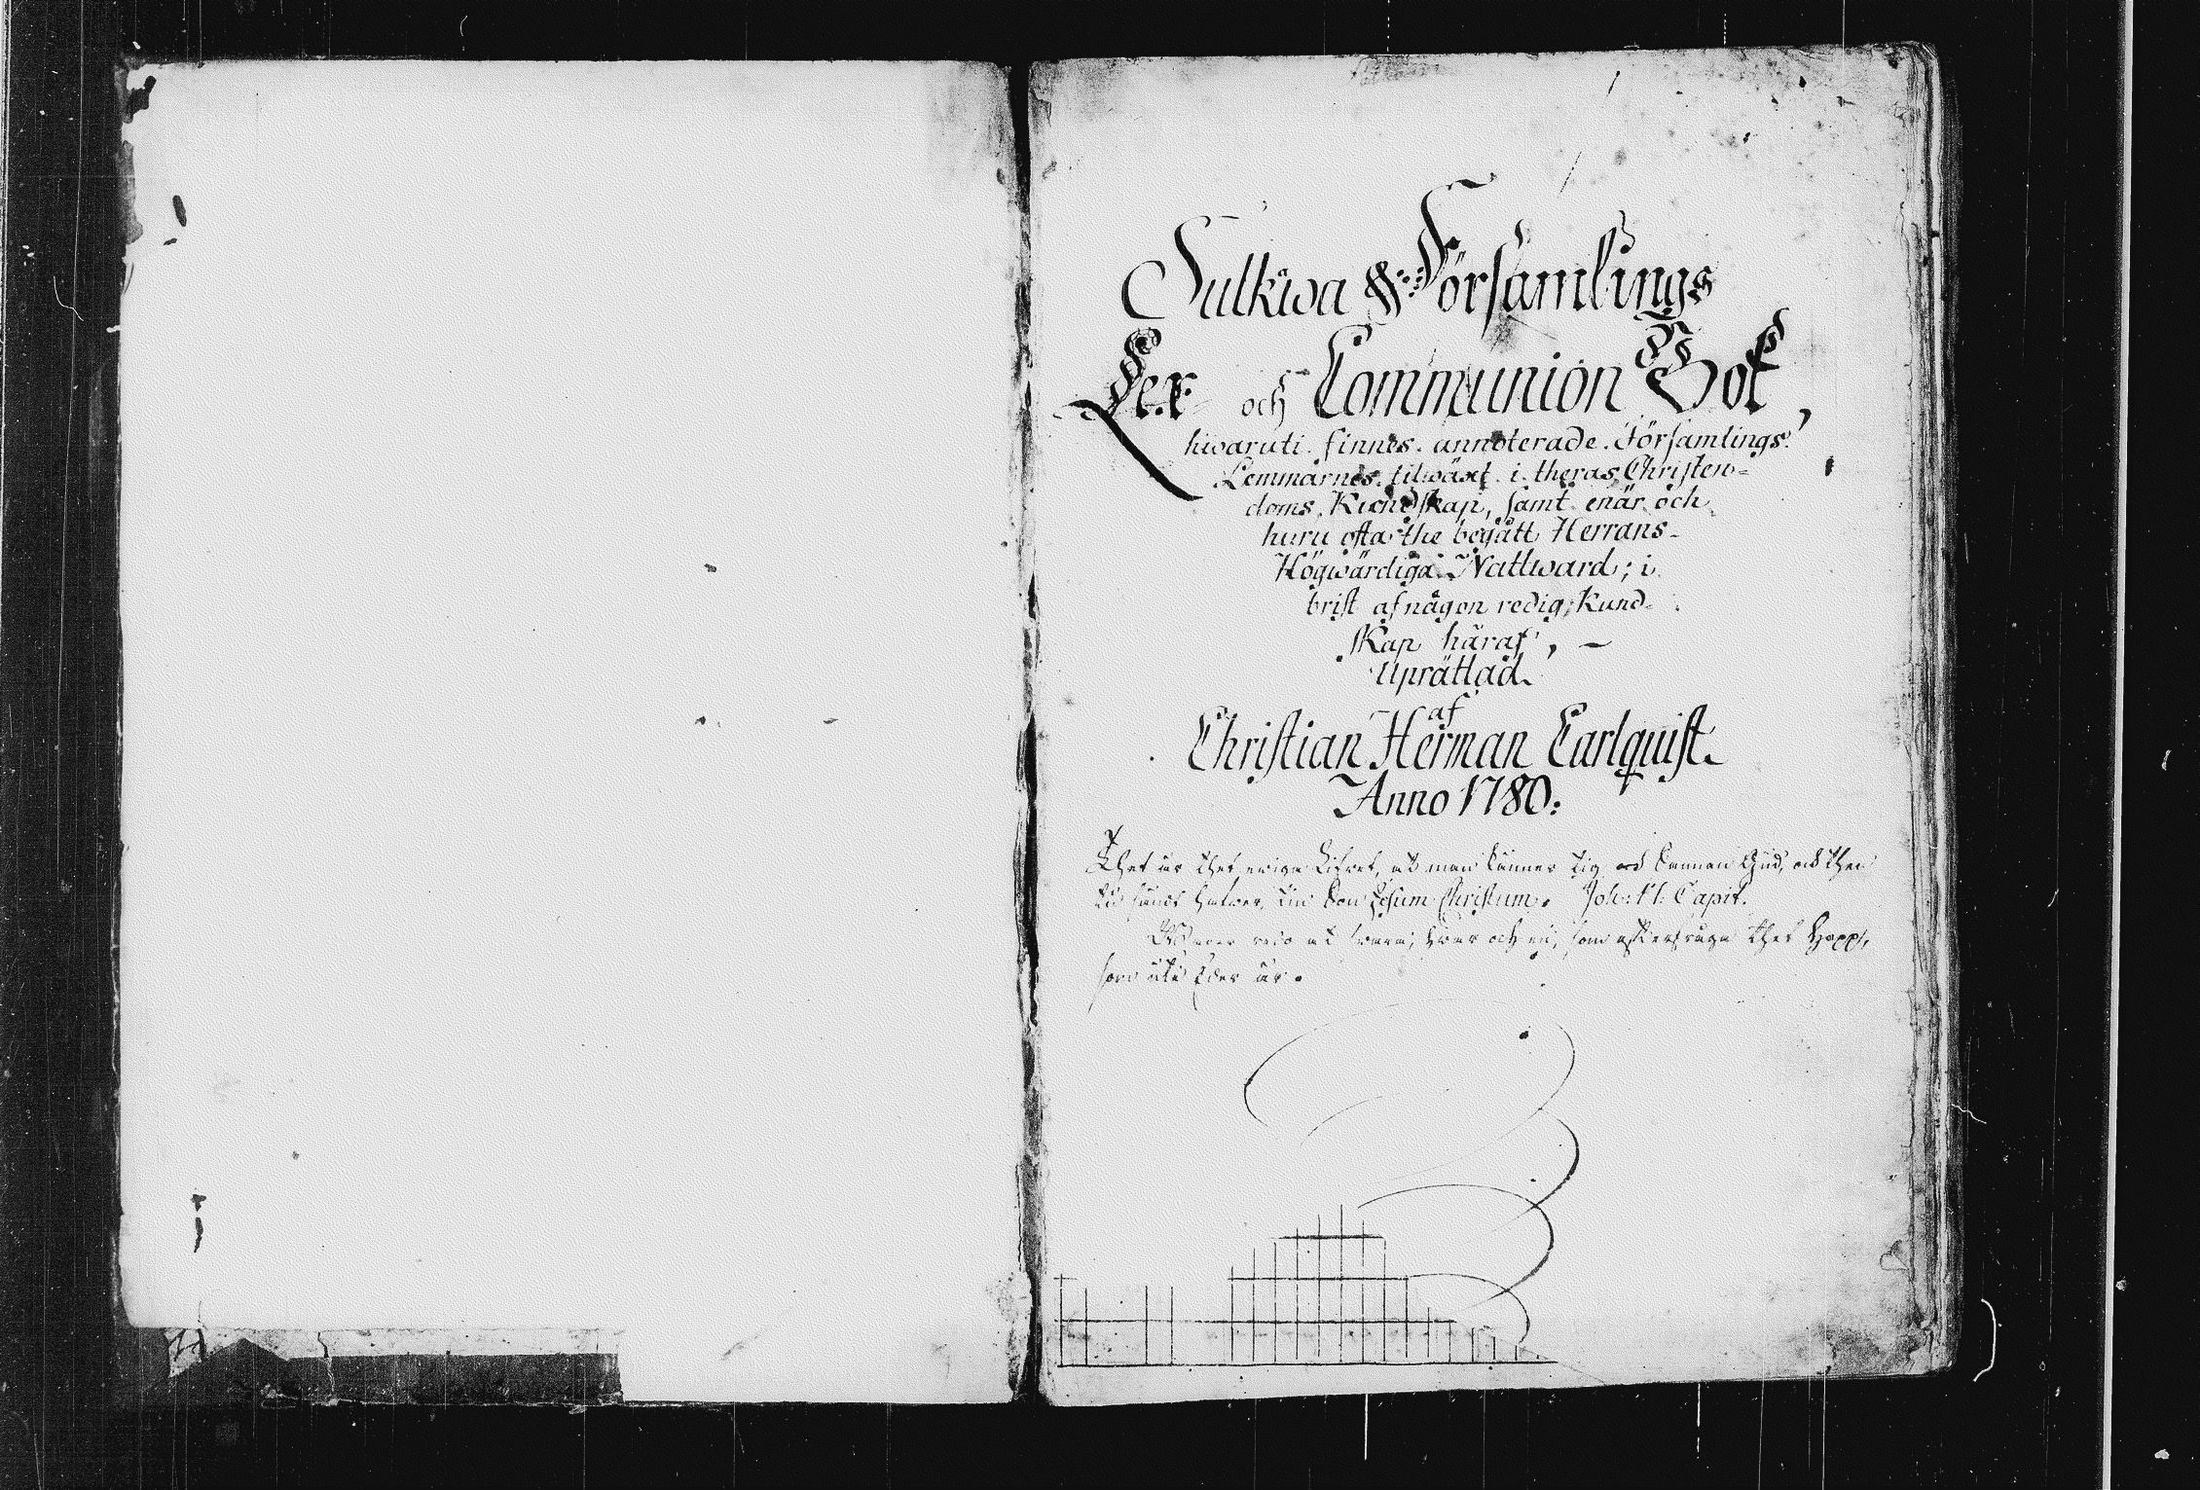 Sulkiwa Församlings
Läs- och Communion Bok,
hwaruti finnes annoterade Församlings
Lemmarnes tilwäxt i theras Christen=
doms Kundskap, samt enär och
huru ofta the begått Herrans
Högwärdiga Nattward; i
brist af någon redig Kund-
skap häraf, —
Uprättad
af
Christian Herman Carlquist.
Anno 1780.
Thet är thet ewiga Lifwet, at man känner tig och sannan Gud, och then
tu sändt hafwer, tin Son Jesum Christum. Joh: 17: Capit.
redo at swara hwar och en, som efterfråga thet Hopp,
som uti Eder är.